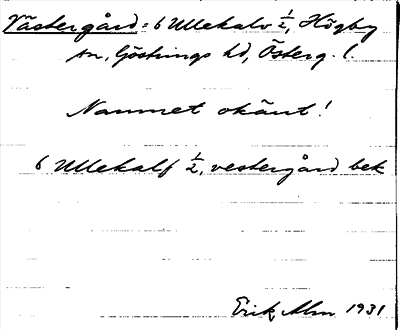 Västergård = 6 Ullekalv ½, Högby
sn, Göstrings hd, Österg. l.
Namnet okänt!
6 Ullekalf ½, vestergård bek
Erik Alm 1931